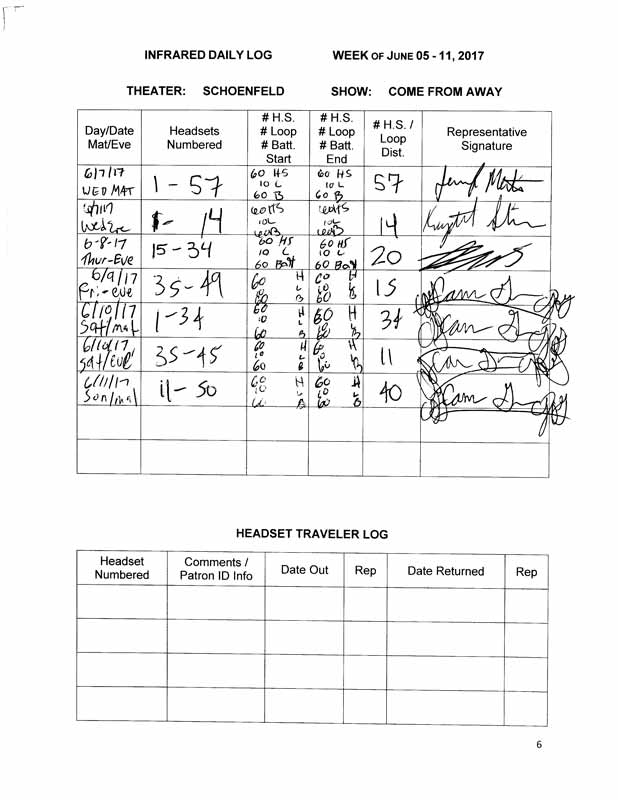 INFRARED DAILY LOG WEEK OF JUNE 05 - 11, 2017
THEATER: SCHOENFELD SHOW: COME FROM AWAY
Day/Date
Mat/Eve
Headsets
Numbered
# H.S.
# Loop
# Batt.
Start
# H.S.
# Loop
# Batt.
End
# H.S. /
Loop
Dist.
Representative
Signature
6/7/17
WED MAT
1 - 57
60 HS
10 L
60 B
60 HS
10 L
60 B
57
Wed Eve
1 - 14
60HS
10L
60B
60HS
10L
60B
14
6-8-17
Thur-Eve
15-34
60 HS
10 L
60 Batt
60 HS
10 L
60 Batt
20
6/9/17
Fri-eve
35-49
60 H
10 L
60 B
60 H
10 L
60 B
15
6/10/17
Sat/mat
1-34
60 H
10 L
60 B
60 H
10 L
60 B
34
6/10/17
Sat/Eve
35-45
60 H
10 L
60 B
60 H
10 L
60 B
11
6/11/17
Sun/mat
11-50
60 H
10 L
60 B
60 H
10 L
60 B
40
HEADSET TRAVELER LOG
Headset
Numbered
Comments /
Patron ID Info
Date Out
Rep
Date Returned
Rep
6